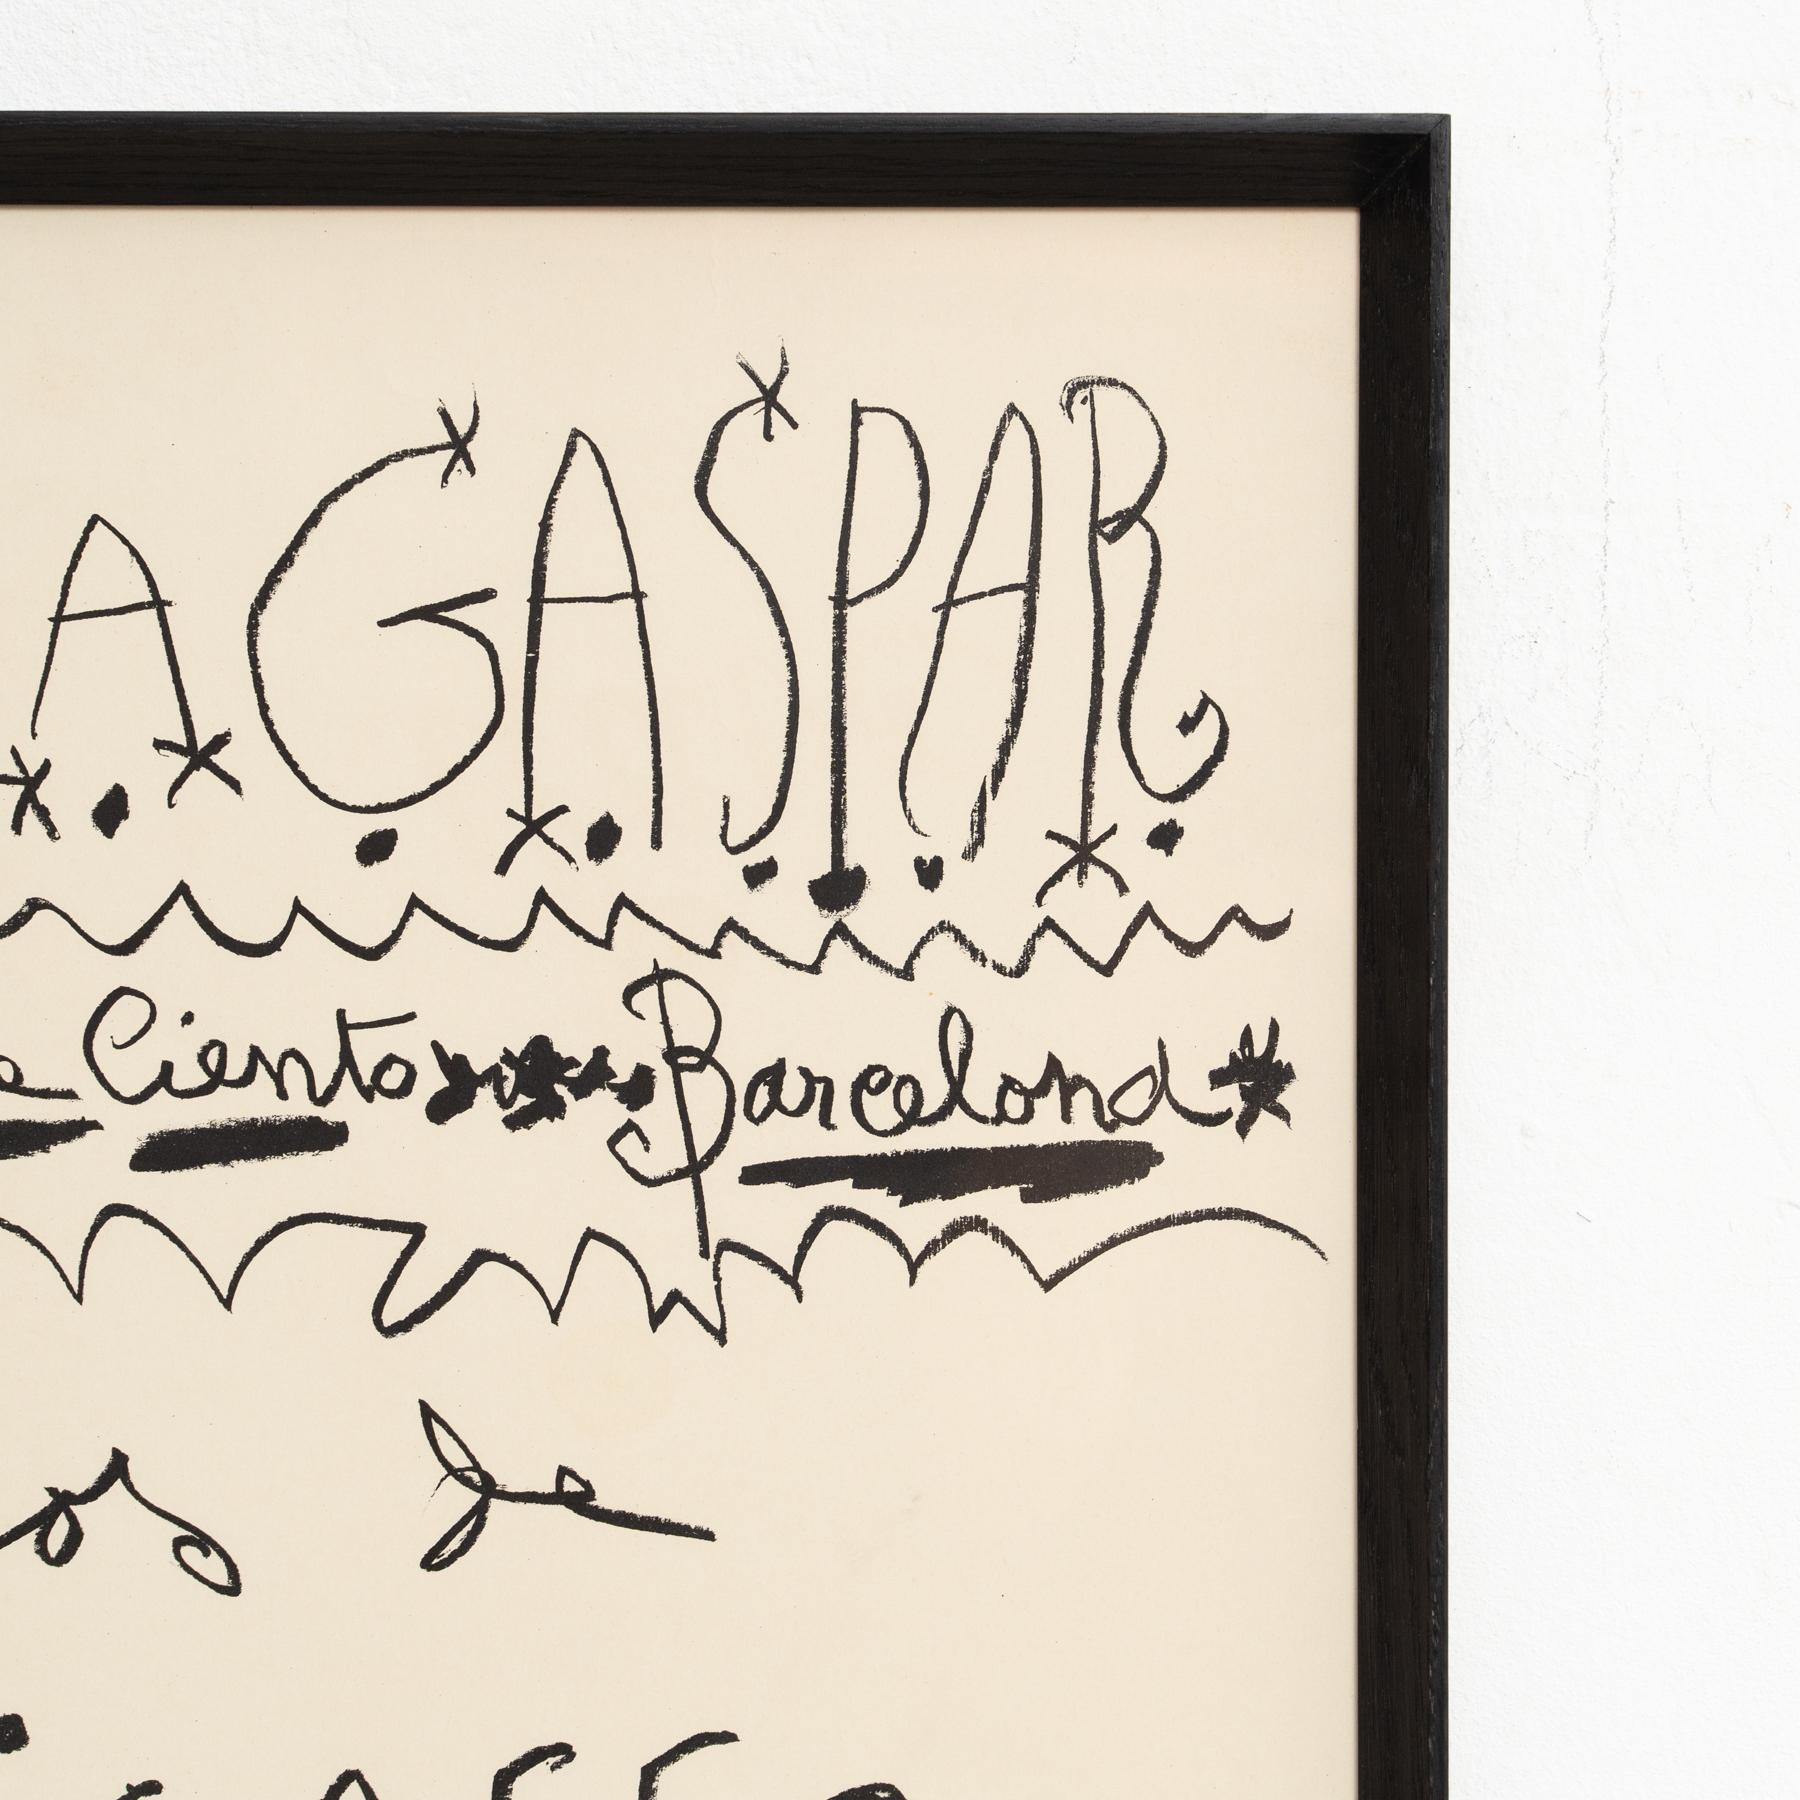 A GASPAR
e Ciento Barcelona
os de